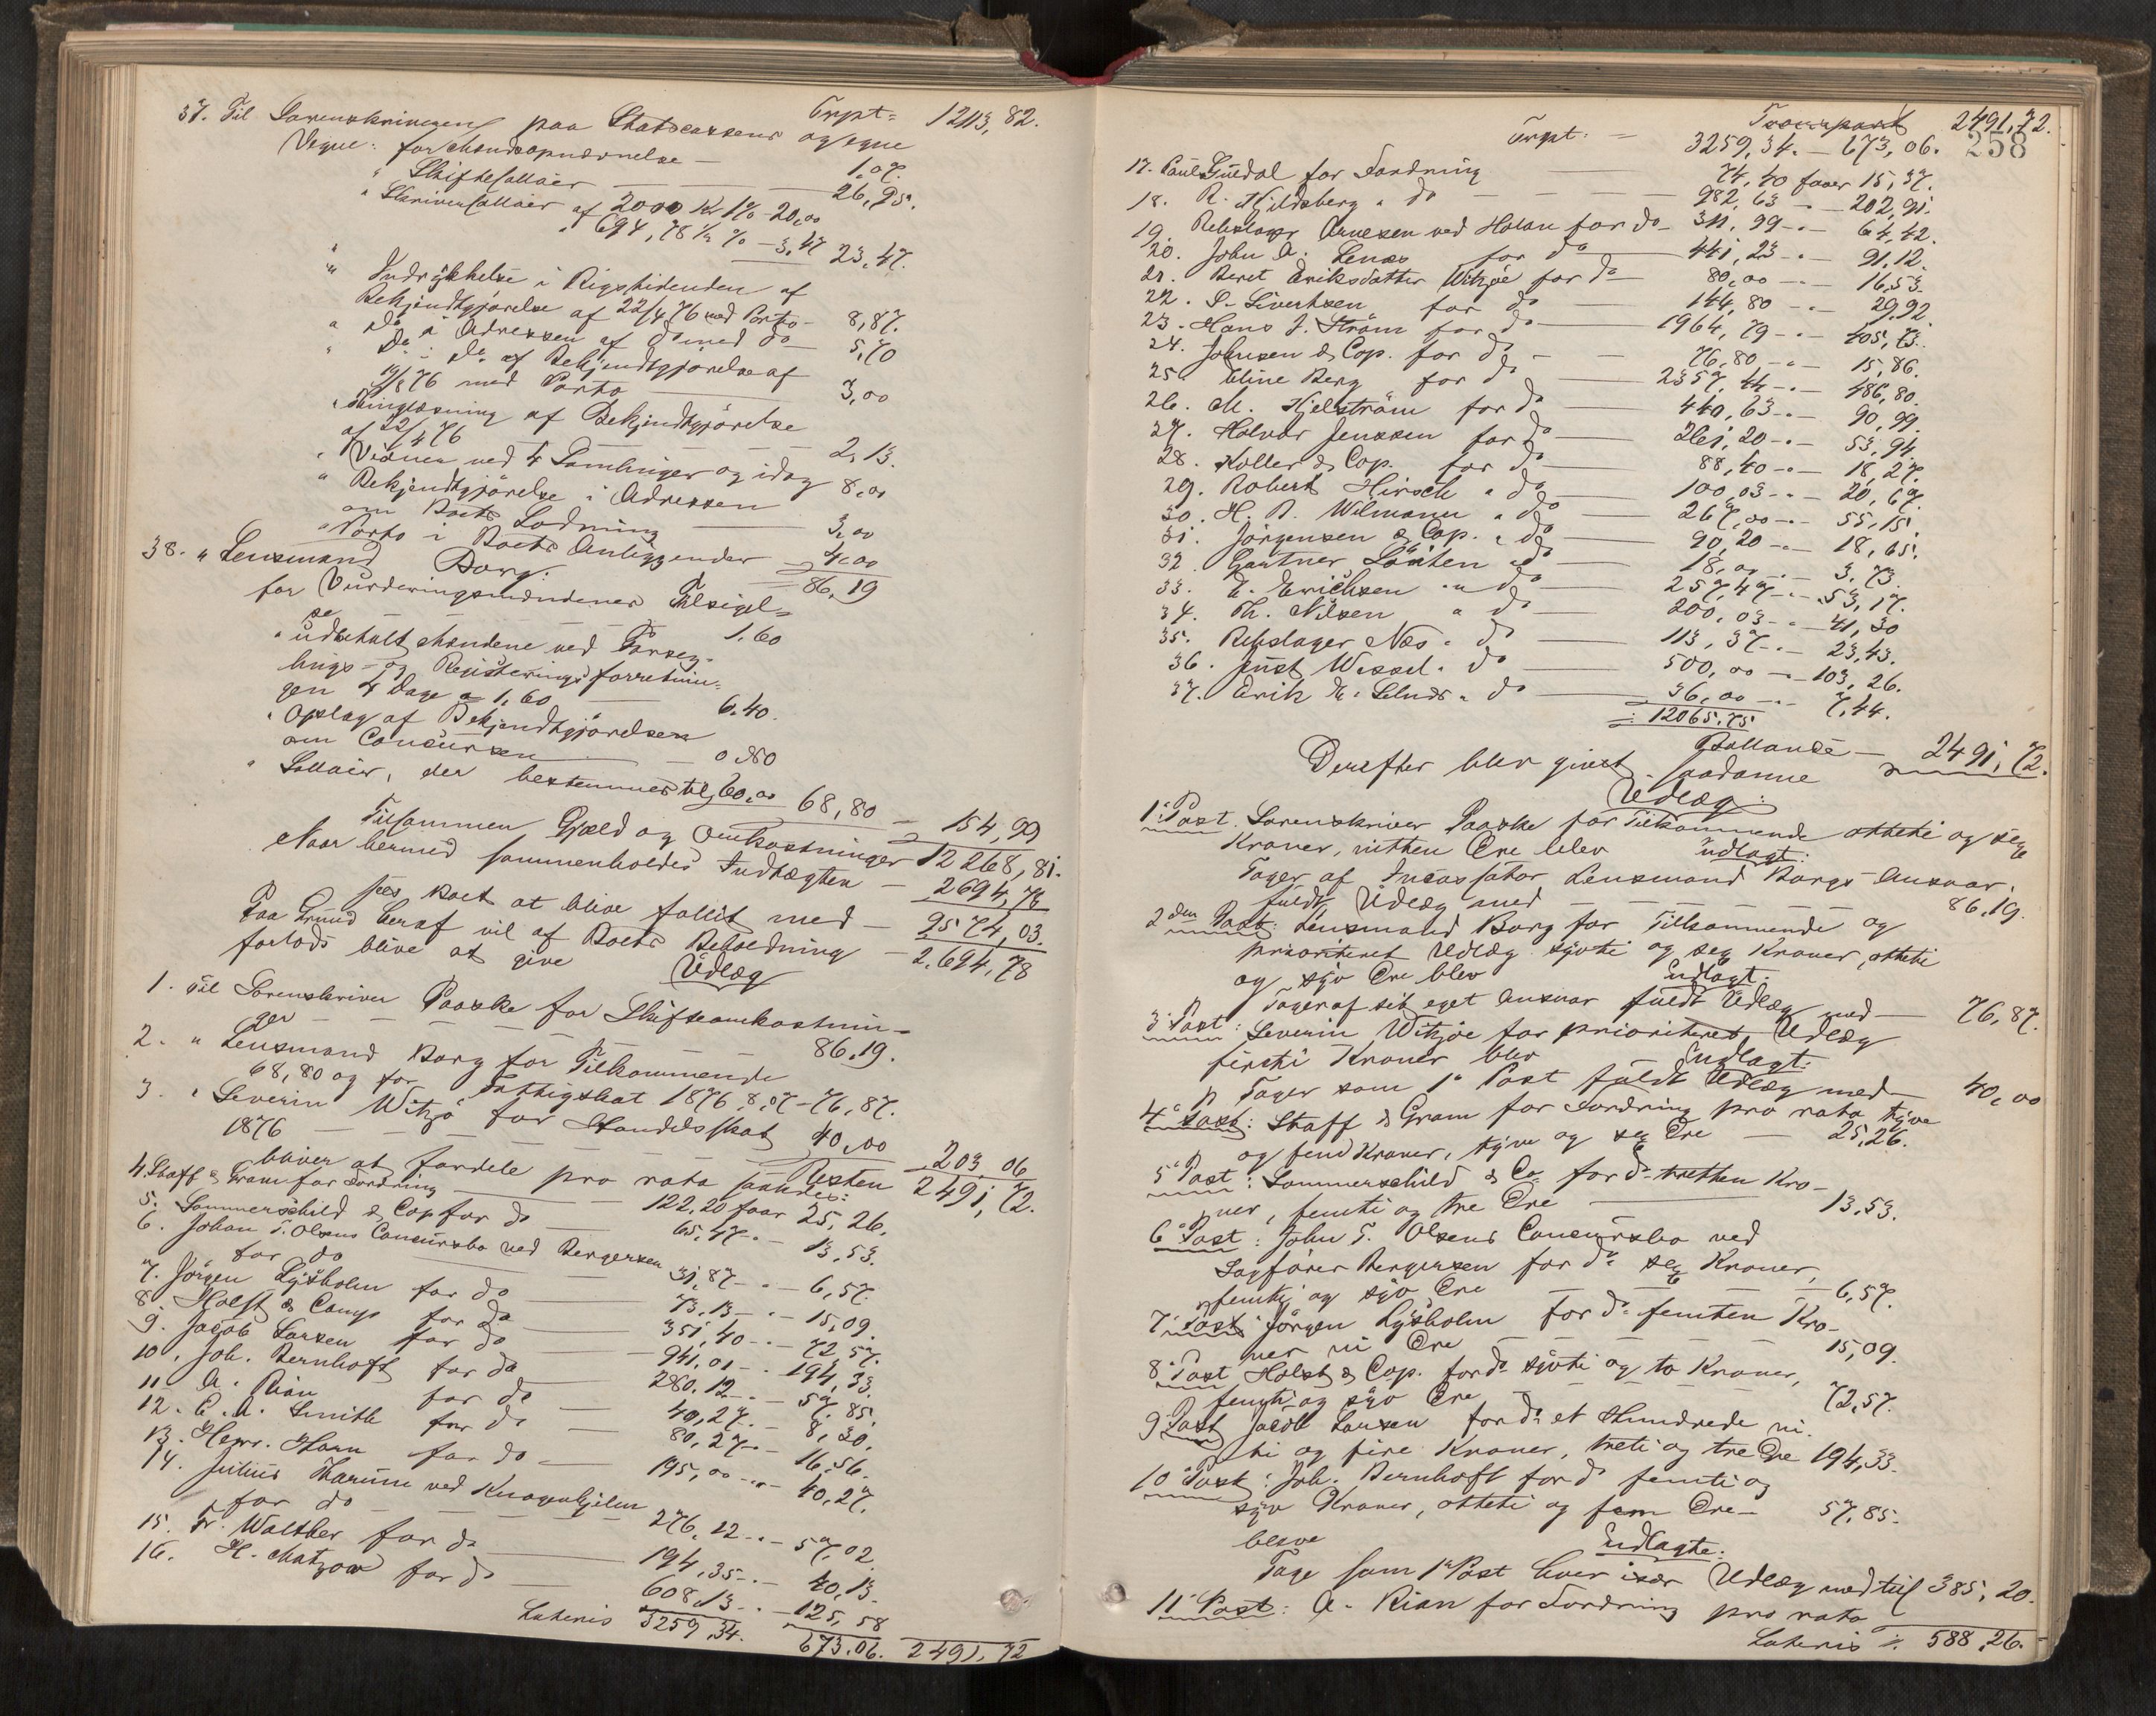 Trpt = 12113,82.
37. Til Sorenskriveren paa Statscassens og egne
Vegne: for Mandsopnævnelse — 1,07.
" Skiftesallair — 26,95.
" Skriversallair af 2000 Kr 1% - 20,00
" 694,78 ½ % - 3,47 23,47.
" Indrykkelse i Rigstidenden af
Bekjendtgjörelse af 22/4 76 med Porto - 8,87.
" Do i Adressen af do med do — 5,70
" Do i Do af Bekjendtgjörelse af
19/8 76 med Porto — 3,00
" Thinglæsning af Bekjendtgjörelse
af 22/4 76 — 2,13.
" Vidner ved 4 Samlinger og idag 8,00
" Bekjendtgjörelse i Adressen
om Boets Slutning — 3,00
" Porto i Boets Anliggender — 4,00
86,19
38. " Lensmand Borg:
for Vurderingsmændenes Tilsigel=
se — 1.60
" udbetalt Mændene ved Forseg-
lings- og Registreringsforretnin=
gen 4 Dage a 1,60 — 6.40.
" Opslag af Bekjendtgjörelsen
om Concursen — 0.80
" Sallair, der bestemmes til 60,00 68,80 — 154,99
Tilsammen Gjæld og Omkostninger 12268,81.
Naar hermed sammenholdes Indtægten — 2694,78
sees Boet at blive fallit med — 9574,03.
Paa Grund heraf vil af Boets Beholdning — 2.694,78
forlods blive at give Udlæg
1. Til Sorenskriver Paaske for Skifteomkostnin-
ger — 86.19.
2. " Lensmand Borg for Tilkommende
68,80 og for Fattigskat 1876 8,07 - 76,87.
3. " Severin Witsjö for Handelsskat
1876 — 40,00 — 203,06
Resten 2491,72.
bliver at fordele pro rata saaledes:
4. Staff & Gram for Fordring — 122,20 faar 25,26.
5. Sommerschild & Cop for do — 65,47. - 13,53.
6. Johan T. Olsens Concursbo ved Bergersen
for do — 31,87 - " - 6,57.
7. Jörgen Lysholm for do — 73,13 - " - 15,09.
8. Holst & Comp for do — 351,40 - " - 72,57.
9. Jacob Larsen for do — 941,01 - " - 194,33.
10. Joh. Bernhoft for do — 280,12 - " - 57,85.
11. A. Rian for do — 40,27 - " - 8,30.
12. C. A. Smith for do — 80,27 - " - 16,56.
13. Henr. Horn for do — 195,00 - " - 40,27.
14. Julius Harum ved Knagenhjelm
for do — 276,12 - " - 57,02.
15. Fr. Walther for do — 194,35 - " - 40,13.
16. H. Matzow for do — 608,13 - " - 125,58
Lateris 3259,34. 673.06. 2491,72
Transport 2491,72.
258
Trpt: = 3259,34. — 673,06.
17. Paul Guldal for Fordring — 74,40 faaer 15,37.
18. R. Kjeldsberg " do — 982,63 - " - 202,91.
19. Rebslager Arnesen ved Holan for do - 311,99 - " - 64,42.
20. John A. Lenæs for do — 441,23 - " - 91,12.
21. Beret Eriksdatter Witsjöe for do — 80,00 - " - 16,53.
22. S. Sivertsen for do — 144,80 - " - 29,92
23. Hans J. Ström for do — 1964,79 - " - 405,73.
24. Johnsen & Cop. for do — 76,80 - " - 15,86.
25. Eline Berg for do — 2357,44 - " - 486,80.
26. M. Kjelström for do — 440,63 - " - 90,99.
27. Halvor Jenssen for do — 261,20 - " - 53,94.
28. Koller & Cop. for do — 88,40 - " - 18,27.
29. Robert Hirsch " do — 100,03 - " - 20,67.
30. H. B. Wilmann " do — 267,00 - " - 55,15.
31. Jörgensen & Cop. " do — 90,20 - " - 18,65.
32. Gartner Löuten " do — 18,00 - " - 3,73.
33. E. Erichsen " do — 257,47 - " - 53,17.
34. Th. Nilsen " do — 200,03 - " - 41,30
35. Rebslager Næs " do — 113,37 - " - 23,43.
36. Just Wessel " do — 500,00 - " - 103,26.
37. Erik E. Selnes " do — 36,00 - " - 7,44.
12065.75
Ballance — 2491,72.
Derefter blev givet saadanne
Udlæg:
1e Post. Sorenskriver Paaske for Tilkommende otteti og sex
Kroner, nitten Öre blev udlagt:
Tager af Incassator Lensmand Borgs Ansvar
fuldt Udlæg med — 86,19.
2den Post: Lensmand Borg for Tilkommende og
prioriteret Udlæg sytti og sex Kroner, otteti
og syv Öre blev Udlagt:
Tager af sit eget Ansvar fuldt Udlæg med — 76,87.
3e Post: Severin Witsjöe for prioriteret Udlæg
firti Kroner blev Udlagt:
Tager som 1e Post fuldt Udlæg med — 40,00
4e Post: Staff & Gram for Fordring pro rata tyve
og fem Kroner, tyve og sex Öre — 25,26.
5e Post: Sommerschild & Co for do tretten Kro-
ner, femti og tre Öre — 13,53.
6e Post: John T. Olsens Concursbo ved
Sagförer Bergersen for do sex Kroner,
femti og syv Öre — 6,57.
7e Post: Jörgen Lysholm for do femten Kro-
ner ni Öre — 15,09.
8e Post Holst & Cop. for do sytti og to Kroner,
femti og syv Öre — 72,57.
9e Post Jacob Larsen for do et Hundrede ni-
ti og fire Kroner, treti og tre Öre 194,33.
10e Post: Joh. Bernhoft for do femti og
syv Kroner, otteti og fem Öre — 57,85.
bleve Udlagte:
Tage som 1e Post hver især Udlæg med til 385,20.
11e Post: A. Rian for Fordring pro rata
Lateris 588,26.